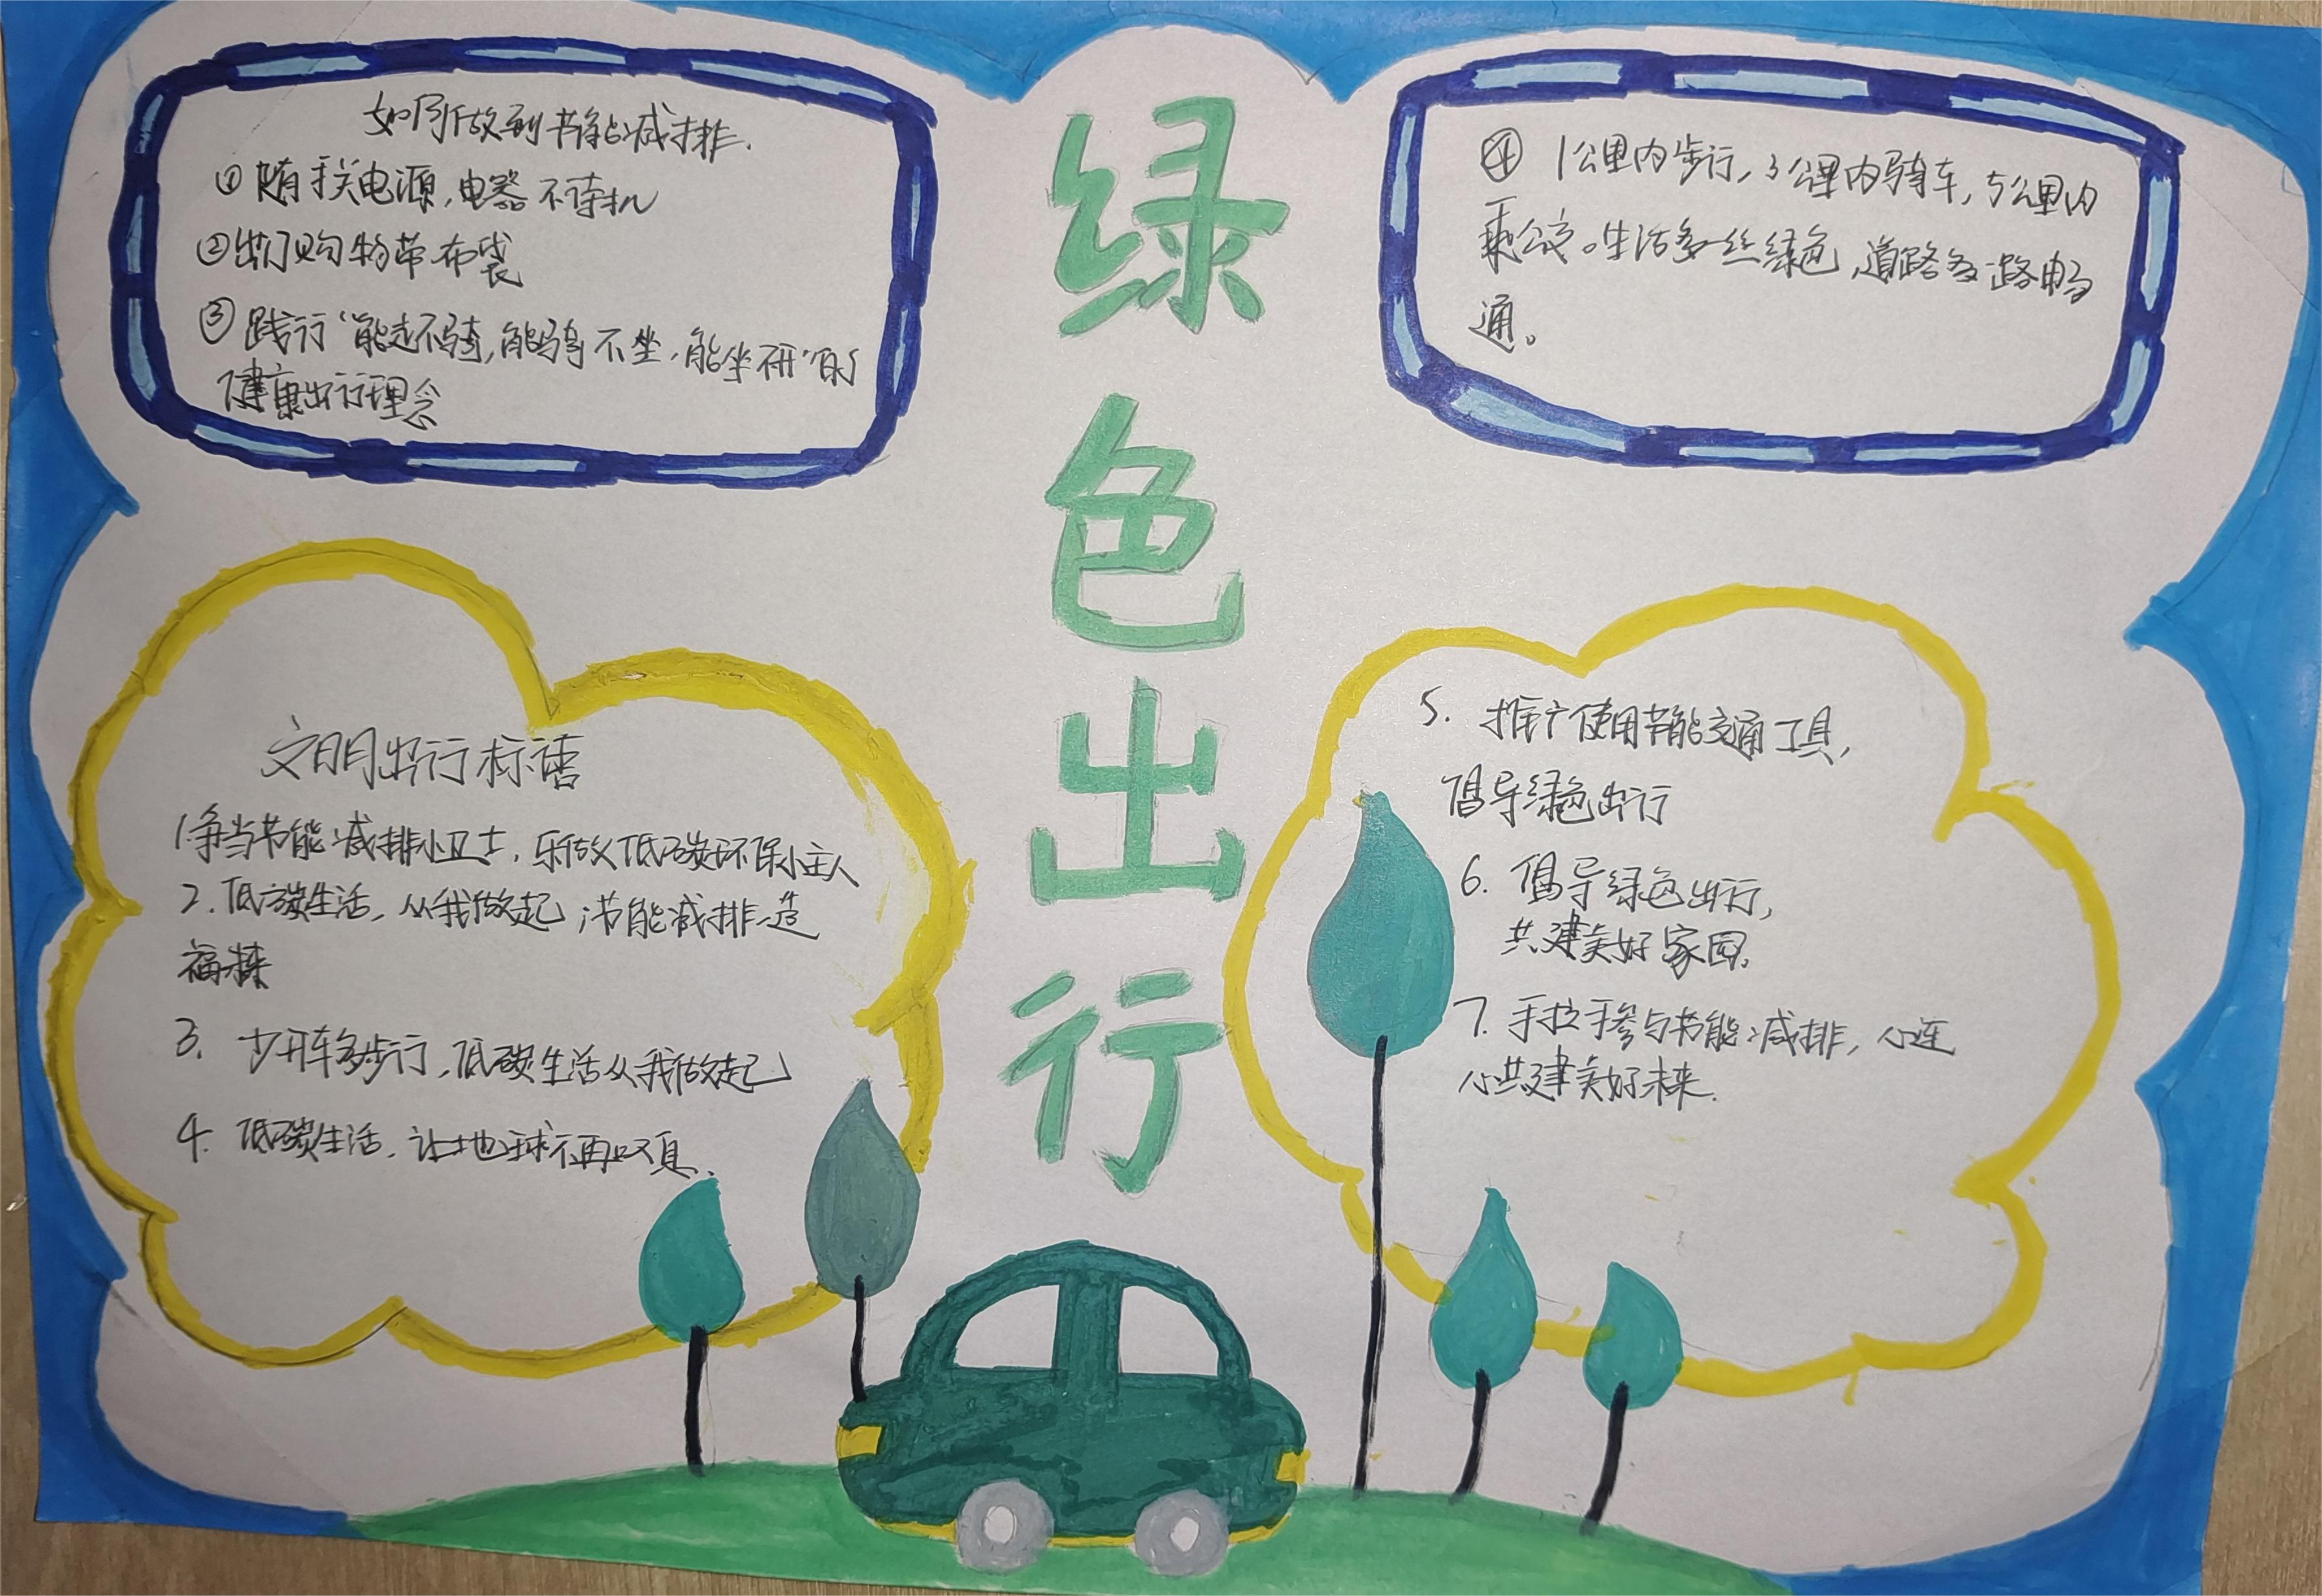 如何做到节能减排.
①随手关电源,电器不待机
②出门购物带布袋
③践行“能走不骑,能骑不坐,能坐不开”的
健康出行理念
④ 1公里内步行,3公里内骑车,5公里内
乘公交。生活多一丝绿色,道路多一路畅
通。
绿色出行
文明出行标语
1.争当节能减排小卫士,乐做低碳环保小主人
2.低碳生活,从我做起;节能减排,造
福
3. 少开车多步行,低碳生活从我做起
4. 低碳生活,让地球不再叹息.
5. 推广使用节能交通工具,
倡导绿色出行
6. 倡导绿色出行,
共建美好家园.
7. 手拉手参与节能减排,心连
心共建美好未来.